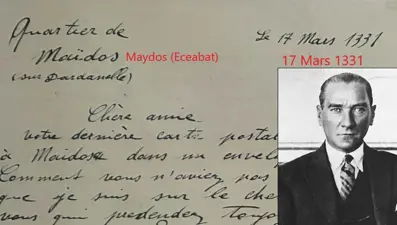 Quartier de
Maïdos
(sur Dardanelle)
Le 17 Mars 1331
Maydos (Eceabat)
17 Mars 1331
Chère amie
votre dernière carte postal
à Maidos dans un envelo
Comment vous n'aviez pas
que je suis sur le che
vous qui prétendez toujo